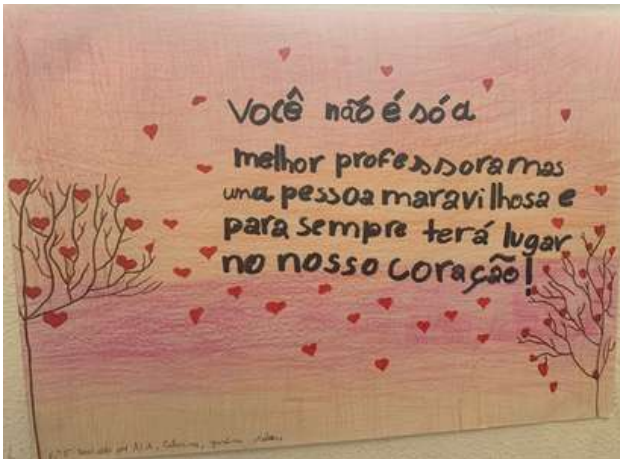 Você não é só a
melhor professora mas
uma pessoa maravilhosa e
para sempre terá lugar
no nosso coração!
por